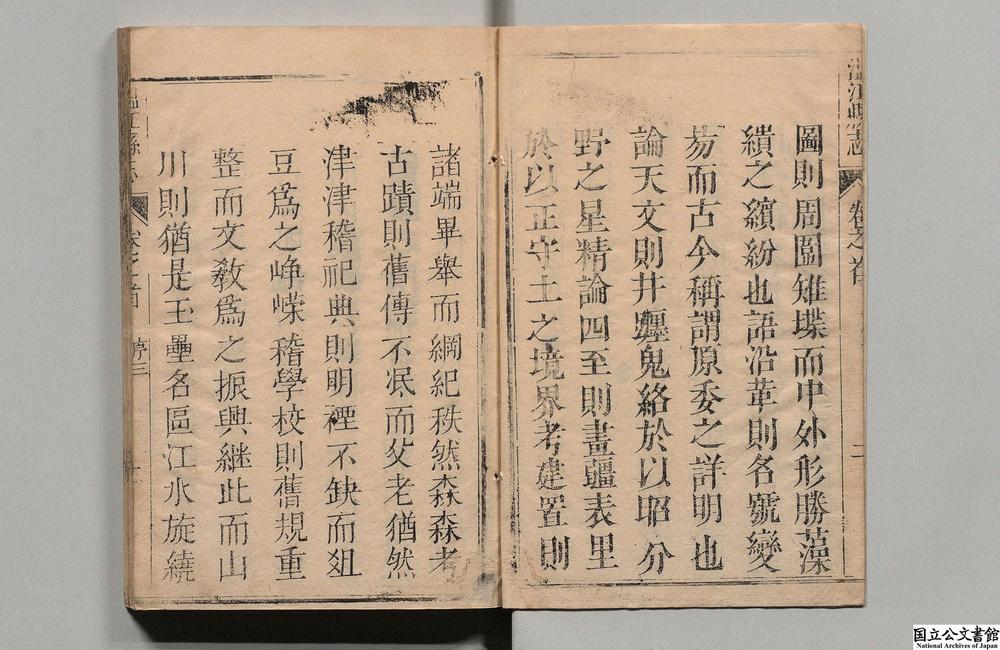 圖則周圍雉堞而中外形勝藻
繢之繽紛也語沿革則名號變
易而古今稱謂原委之詳明也
論天文則井躔鬼絡於以昭分
野之星精論四至則畫疆表里
於以正守土之境界考建置則
諸端畢舉而綱紀秩然森森考
古蹟則舊傳不泯而父老猶然
津津稽祀典則明禋不缺而俎
豆爲之崢嶸稽學校則舊規重
整而文教爲之振興繼此而山
川則猶是玉壘名區江水旋繞
溫江縣志
卷之首
二
卷之首
序三
国立公文書館
National Archives of Japan